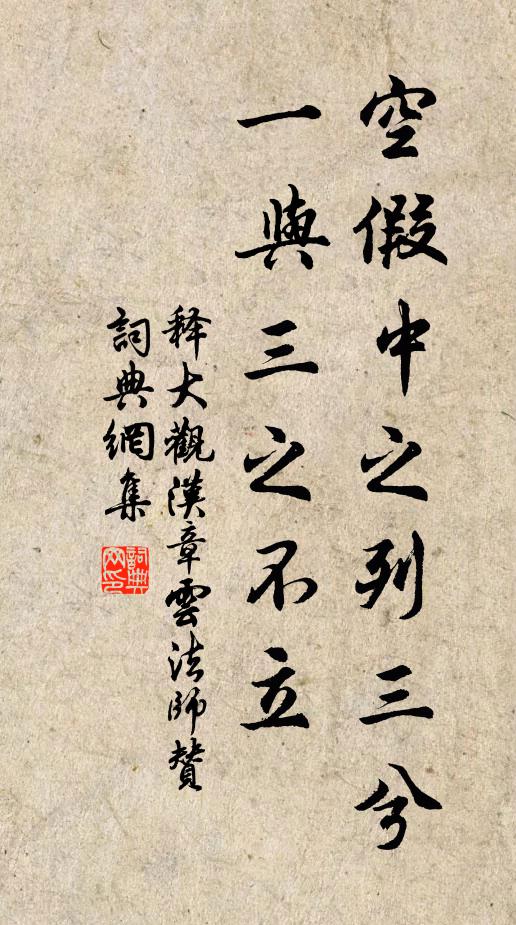 空假中之列三兮
一與三之不立
释大觀漢章雲法師贊
詞典網集
詞典網印